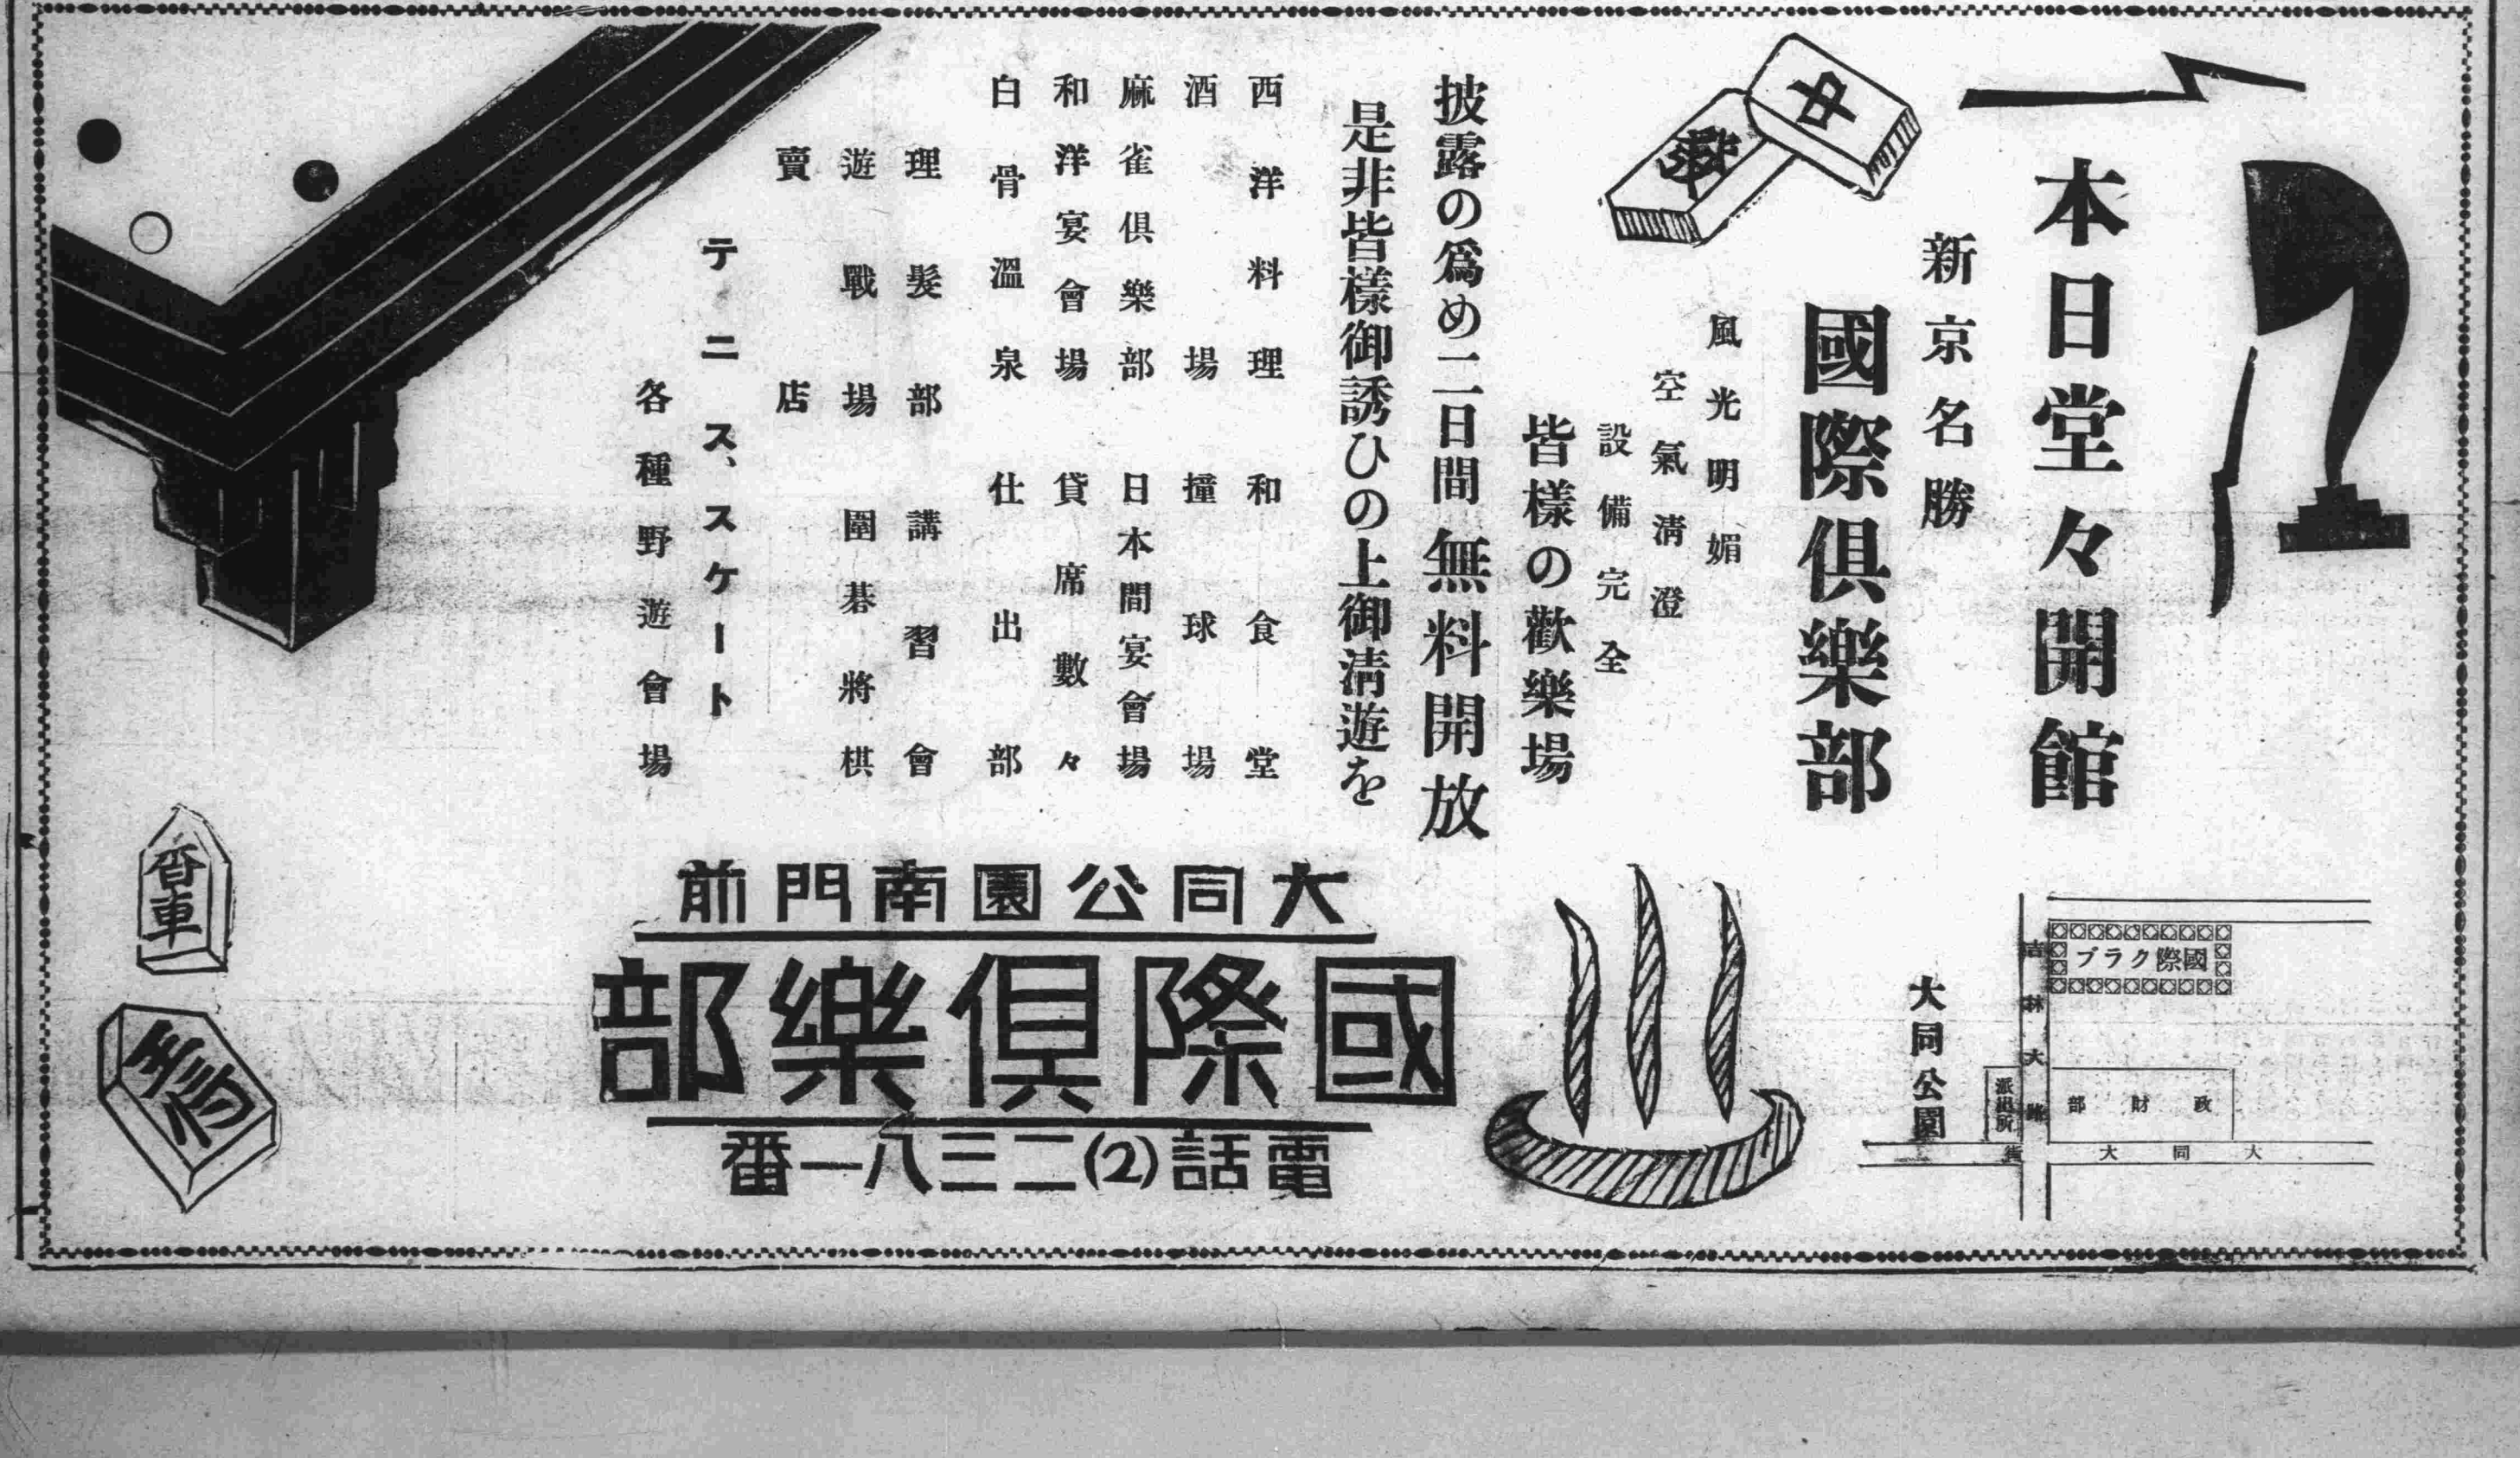 本日堂々開館
新京名勝
國際倶樂部
風光明媚
空氣淸澄
設備完全
皆樣の歡樂場
披露の爲め二日間 無料開放
是非皆樣御誘ひの上御淸遊を
西洋料理 和食堂
酒場 撞球場
麻雀倶樂部 日本間宴會場
和洋宴會場 貸席數々
白骨溫泉 仕出部
理髮部 講習會
遊戰場 圍碁將棋
賣店
テニス、スケート
各種野遊會場
大同公園南門前
國際倶樂部
電話(2)二三八一番
中
國際クラブ
吉林大路
大同公園
派出所
財政部
大同大街
香車